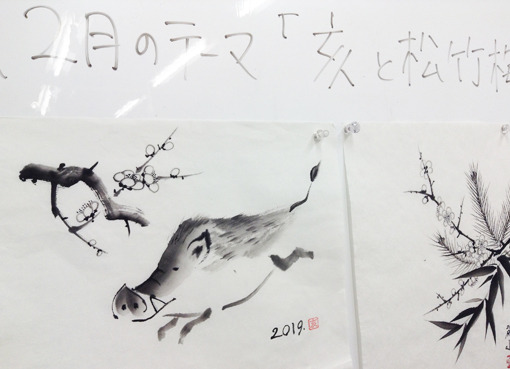 2月のテーマ「亥と松竹梅
2019.